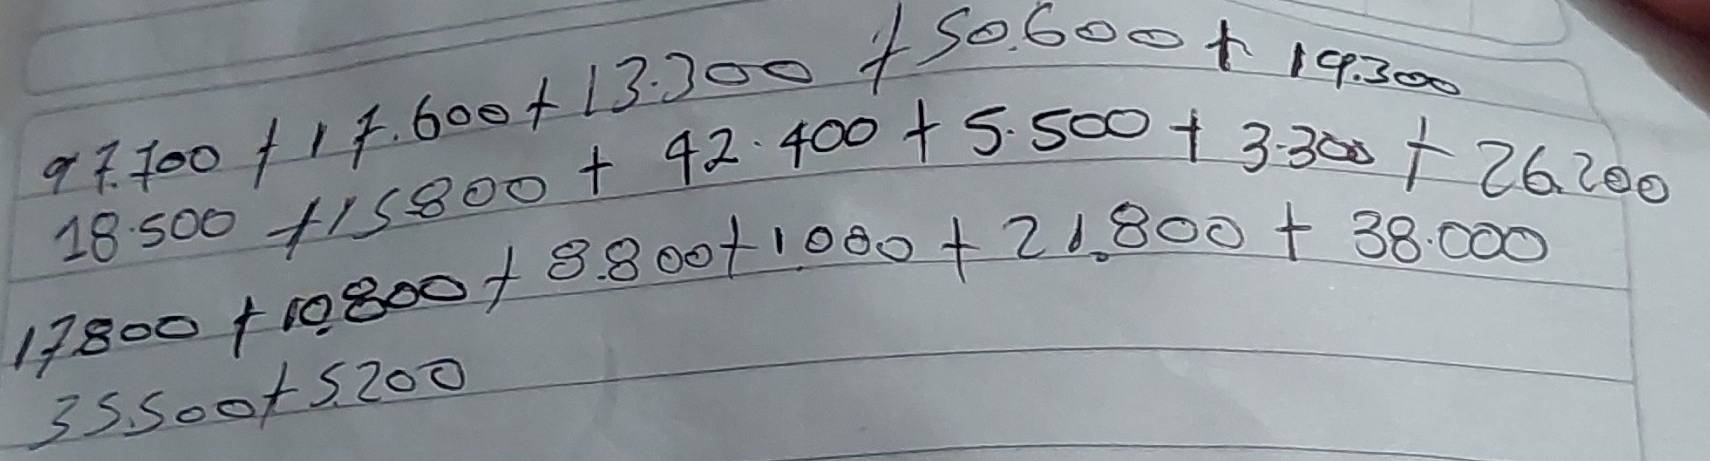 97.700 + 17.600 + 13.300 + 50.600 + 19.300
18.500 + 15.800 + 42.400 + 5.500 + 3.300 + 26.200
17800 + 10.800 + 8.800 + 1.000 + 21.800 + 38.000
35.500 + 5.200